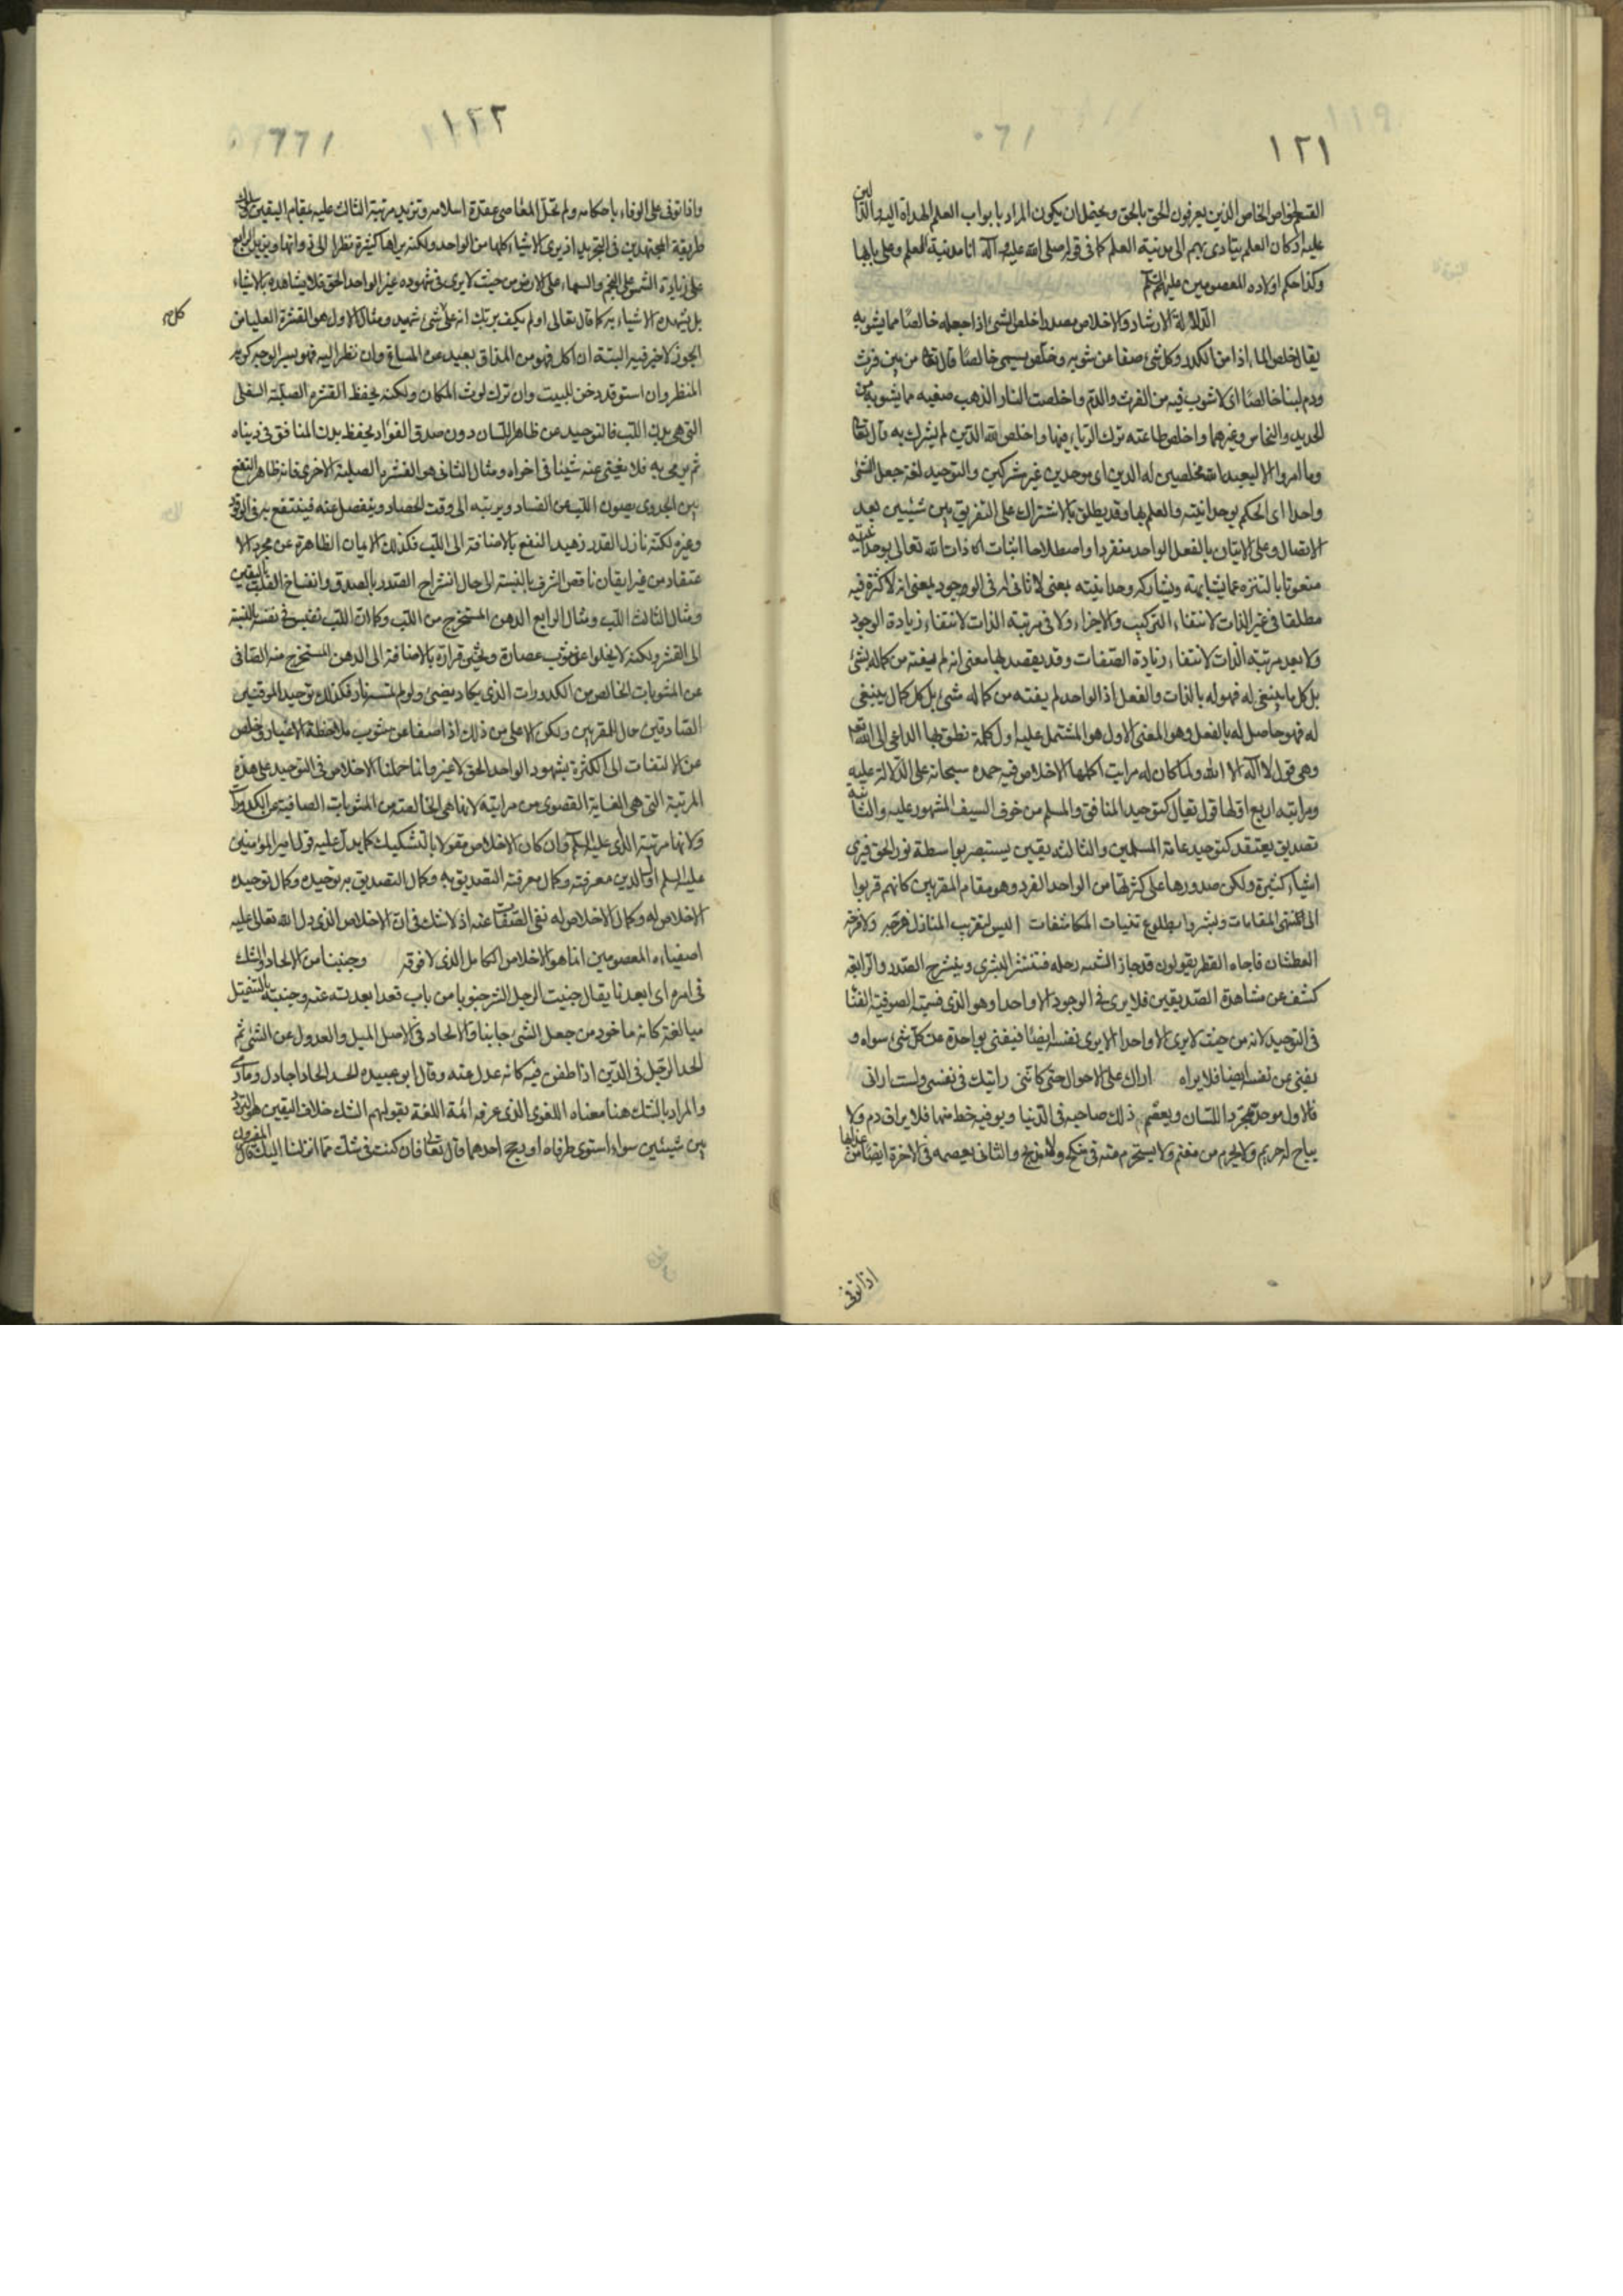 ١٢١
القسم لخواص الخاص الذين يعرفون الحق بالحق ويحتمل ان يكون المراد بابواب العلم الهداة اليه والدالين
عليه اذ كان العلم يتادى بهم الى مدينة العلم كما فى قوله صلى الله عليه وآله انا مدينة العلم وعلى بابها
وكذا حكم اولاده المعصومين عليهم السلم
الدلالة الارشاد والاخلاص مصدر اخلص الشئ اذا جعله خالصا مما يشوبه
يقال خلص الماء اذا من الكدر وكل شئ صفا عن شوبه وخلص يسمى خالصا قال تعا من بين فرث
ودم لبنا خالصا اى لا شوب فيه من الفرث والدم واخلصت النار الذهب صفيه مما يشوبه من
الحديد والنحاس وغيرهما واخلص طاعته ترك الرياء فيها واخلص لله الدين لم يشرك به قال تعا
وما امروا الا ليعبدوا الله مخلصين له الدين اى موحدين غير مشركين والتوحيد لغة جعل الشئ
واحدا اى الحكم بوحدانيته والعلم بها وقد يطلق بالاشتراك على التفريق بين شيئين بعد
الاتصال وعلى الاتيان بالفعل الواحد منفردا واصطلاحا اثبات ذات الله تعالى بوحدانيته
منعوتا بالتنزه عما يشابهه ويشاركه وحدانيته بمعنى لا ثانى له فى الوجود وبمعنى انه لا كثرة فيه
مطلقا فى غير الذات لانتفاء التركيب والاجزاء ولا فى مرتبة الذات لانتفاء زيادة الوجود
ولا بعد مرتبة الذات لانتفاء زيادة الصفات وقد يقصد بها معنى انه لم يفته من كماله شئ
بل كل ما ينبغى له فهو له بالذات والفعل اذ الواحد لم يفته من كماله شئ بل كل كمال ينبغى
له فهو حاصل له بالفعل وهو المعنى الاول هو المشتمل عليه اول كلمة نطق بها الداعى الى الله تعه
وهى قول لا اله الا الله ولما كان له مراتب اكملها الاخلاص فيه حمده سبحانه على الدلالة عليه
ومراتبه اربع اولها قول يقال كتوحيد المنافق والمسلم من خوف السيف المشهور عليه والثانية
تصديق يعتقد كتوحيد عامة المسلمين والثالث يقين يستبصر بواسطة نور الحق فيرى
اشياء كثيرة ولكن صدورها على كثرتها من الواحد الفرد وهو مقام المقربين كانهم قربوا
الى منتهى المقامات وبشروا بطلوع المكاشفات اليس لتقريب المنازل فرحة ولا فرحة
العطشان فاجاه القطر يقولون قد جاز رحله فتنتشر البشرى وينشرح الصدر والرابعة
كشف عن مشاهدة الصديقين فلا يرى فى الوجود الا واحدا وهو الذى تسميه الصوفية الفنا
فى التوحيد لانه من حيث لا يرى الا واحدا لا يرى نفسه ايضا فيفنى بواحدة عن كل شئ سواه و
يفنى عن نفسه ايضا فلا يراه اراك على الاحوال حتى كاننى رايتك فى نفسى ولست ارانى
فالاول موحد بمجرد اللسان ويعصم ذلك صاحبه فى الدنيا ويوفيه حظ منها فلا يراق دم ولا
يباح له حريم ولا يحرم من مغنم ولا يستحرم منه فى منكح ولا والثانى يعصمه فى الاخرة ايضا من عذابها
اذا توفى
١٢٢
واذا توفى على الوفاء باحكامه ولم تحل المعاصى عقدة اسلامه وتزيد مرتبة الثالث عليه بمقام اليقين
طريقة المجتهدين فى التجريد اذ يرى الاشياء كلها من الواحد ولكنه يراها كثيرة نظرا الى ذواتها ويزيد الرابع
على زيادة الشمس على النجم والسماء على الارض من حيث لا يرى فى شهوده غير الواحد الحق فلا يشاهده بالاشياء
بل يشهد الاشياء به كما قال تعالى اولم يكف بربك انه على كل شئ شهيد ومثال الاول هو القشرة العليا من
الجوز لا خير فيه البتة ان اكل فهو من المذاق بعيد عن المساغ وان نظر اليه فهو كريه
المنظر وان استوقد دخن البيت وان ترك لوث المكان ولكنه يحفظ القشرة الصلبة السفلى
التى هى بدن اللب فالتوحيد عن ظاهر اللسان دون صدق الفؤاد يحفظ بدن المنافق فى دنياه
ثم يرمى به فلا يغنى عنه شيئا فى اخراه ومثال الثانى هو القشرة الصلبة الاخرى فانه ظاهر النفع
بين الجدوى يصون اللب عن الفساد ويربيه الى وقت الحصاد وينفصل عنه فينتفع به فى الوقود
وغيره لكنه نازل القدر زهيد النفع بالاضافة الى اللب فكذلك الايمان الظاهرة عن مجرد الا
عتقاد من غير ايقان ناقص الشرف بالنسبة الى حال انشراح الصدر بالصدق وانفساح القلب باليقين
ومثال الثالث اللب ومثال الرابع الدهن المستخرج من اللب وكما ان اللب نفيس فى نفسه بالنسبة
الى القشر ولكنه لا يخلوا عن شوب عصارة وخشى قرارة بالاضافة الى الدهن المستخرج منه الصافى
عن المشوبات الخالص من الكدورات الذى يكاد يضئ ولو لم تمسسه نار فكذلك توحيد الموقنين
الصادقين حال المقربين ولكن الاعلى من ذلك اذا صفا عن شوب ملاحظة الاغيار وخلص
عن الالتفات الى الكثرة بشهود الواحد الحق لا غير وانما حملنا الاخلاص فى التوحيد على هذه
المرتبة التى هى الغاية القصوى من مراتبه لانها هى الخالصة من المشوبات الصافية من الكدورات
ولانها مرتبة الداعى عليه السلم وان كان الاخلاص مقولا بالتشكيك كما يدل عليه قول امير المؤمنين
عليه السلم اول الدين معرفته وكمال معرفته التصديق به وكمال التصديق به توحيده وكمال توحيده
الاخلاص له وكمال الاخلاص له نفى الصفات عنه اذ لا شك فى ان الاخلاص الذى دل الله تعالى عليه
اصفياءه المعصومين انما هو الاخلاص الكامل الذى لا فوقه وجنبنا من الالحاد والشك
فى امره اى ابعدنا يقال جنبت الرجل الشر جنوبا من باب قعد ابعدته عنه وجنبته بالتثقيل
مبالغة كانه ماخوذ من جعل الشئ جانبا والالحاد فى الاصل الميل والعدول عن الشئ ثم
لحد الرجل فى الدين اذا طعن فيه كانه عدل عنه وقال ابو عبيده لحد الحادا جادل ومارى
والمراد بالشك هنا معناه اللغوى الذى عرفه ائمة اللغة بقولهم الشك خلاف اليقين هو التردد
بين شيئين سواء استوى طرفاه او رجح احدهما قال تعالى فان كنت فى شك مما انزلنا اليك قال
كل صح